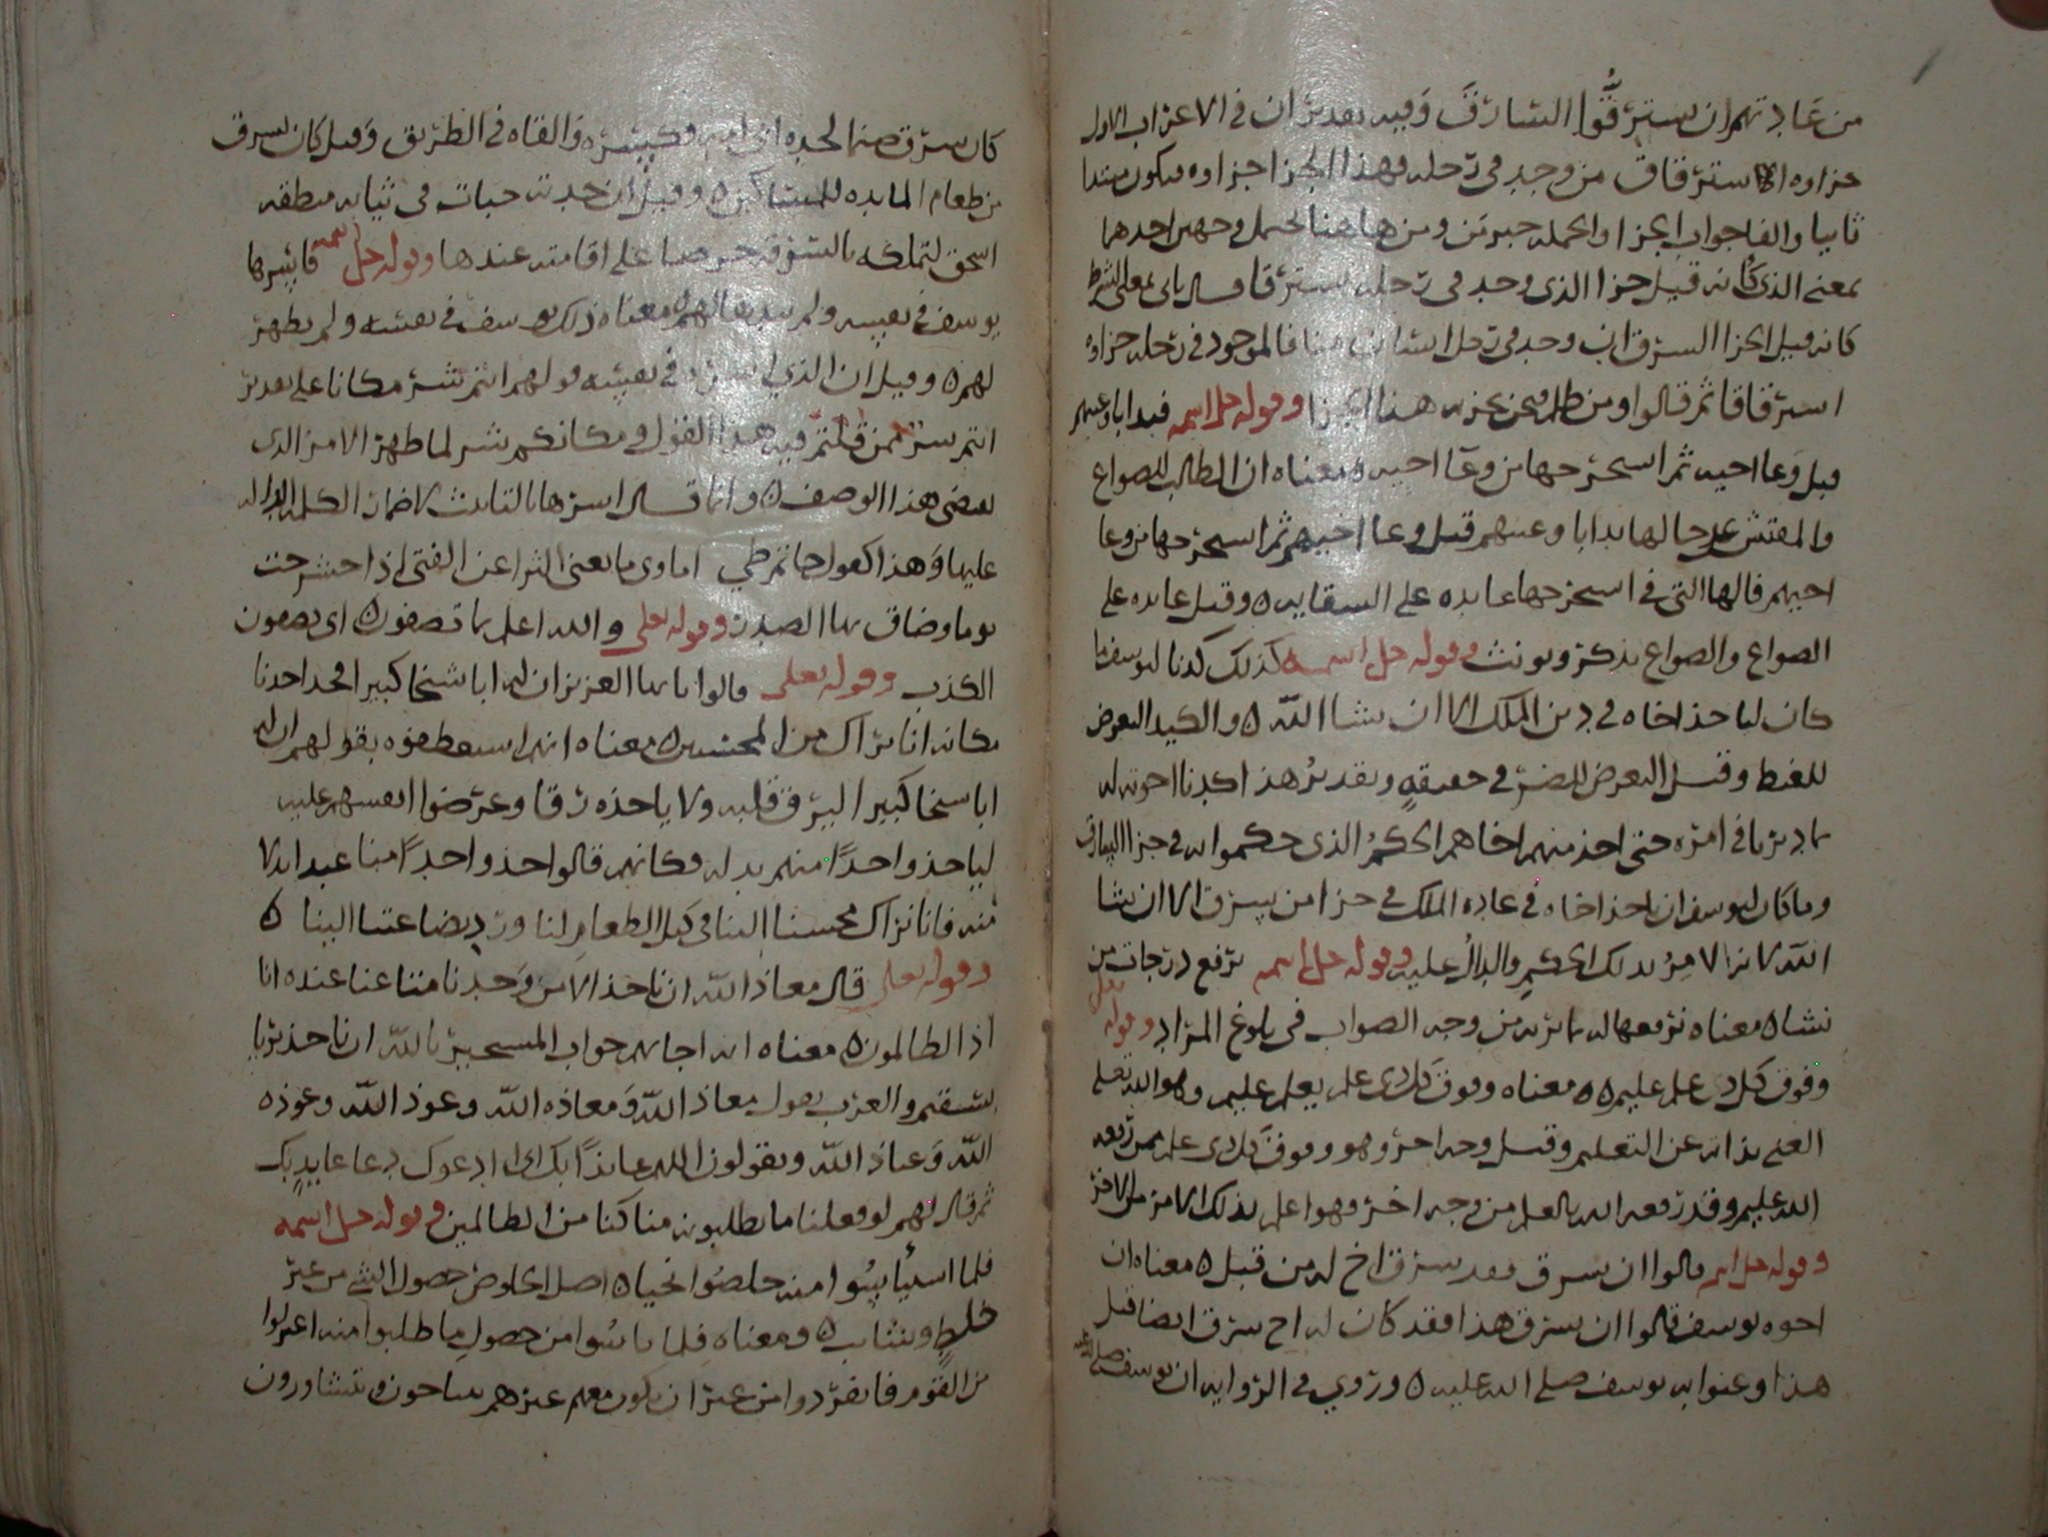 من عادتهم ان يسترقوا السارق وفيه تقديران في الاعراب الاول
جزاوه الاسترقاق من وجد في رحله فهذا الجزا جزاوه فيكون مبتدا
ثانيا والفا جواب الجزا والجمله خبر من ومن هاهنا تحتمل وجهين احدهما
بمعنى الذي كانه قيل جزا الذي وجد في رحله يسترقا والثاني بمعنى الشرط
كانه قيل الجزا السرق ان وجد في رحل انسان منا فالموجود في رحله جزاوه
استرقاقا ثم قالوا ومن ظلم فنحن نجزيه هذا الجزا وقوله جل اسمه فبدا باوعيتهم
قبل وعا اخيه ثم استخرجها من وعا اخيه ٥ معناه ان الطالب للصواع
والمفتش على حالها بدا باوعيتهم قبل وعا اخيهم ثم استخرجها من وعا
اخيهم فالها التي في استخرجها عايده على السقايه ٥ وقيل عايده على
الصواع والصواع يذكر ويونث وقوله جل اسمه كذلك كدنا ليوسف ما
كان لياخذ اخاه في دين الملك الا ان يشا الله ٥ والكيد التعرض
للغيظ وقيل التعرض للضر في حقيقه وتقدير هذا كدنا اخوته له
بما دبرنا في امره حتى اخذ منهم اخاهم الحكم الذي حكموا به في جزا السارق
وما كان ليوسف ان ياخذ اخاه في عاده الملك في جزا من يسرق الا ان يشا
الله لانه الامر بذلك الحكم والدال عليه وقوله جل اسمه نرفع درجات من
نشا ٥ معناه نرفعها له بما نريه من وجه الصواب في بلوغ المراد وقوله تعلى
وفوق كل ذي علم عليم ٥٥ معناه وفوق كل ذي علم يعلم عليم وهو الله تعلى
الغني بذاته عن التعليم وقيل وجه اخر وهو وفوق كل ذي علم ممن رفعه
الله عليم وقد رفعه الله بالعلم من وجه اخر وهو اعلم بذلك الامر من الاخر
وقوله جل اسمه قالوا ان يسرق فقد سرق اخ له من قبل ٥ معناه ان
اخوه يوسف قالوا ان يسرق هذا فقد كان له اخ سرق ايضا قبل
هذا وعنوا به يوسف صلى الله عليه ٥ وروي في الروايه ان يوسف صلى الله عليه
كان سرق صنما لجده ابي امه وكسره والقاه في الطريق وقيل كان يسرق
من طعام المايده للمساكين ٥ وقيل ان جدته خبات في ثيابه منطقه
اسحق لتملكه بالسرقه حرصا على اقامته عندها وقوله جل اسمه فاسرها
يوسف في نفسه ولم يبدها لهم ٥ معناه ذلك يوسف في نفسه ولم يظهر
لهم ٥ وقيل ان الذي اسر في نفسه قولهم انتم شر مكانا على تقدير
انتم شر ممن قلتم فيه هذا القول ومكانكم شر لما ظهر الامر الذي
يقتضي هذا الوصف ٥ وانما قال اسرها بالتانيث لاضمار الكلمه الدال
عليها وهذا كقول حاتم طي اماوي ما يغني الثرا عن الفتى اذا حشرجت
يوما وضاق بها الصدر وقوله تعلى والله اعلم بما تصفون ٥ اي تصفون
الكذب وقوله تعلى قالوا يا ايها العزيز ان له ابا شيخا كبيرا فخذ احدنا
مكانه انا نراك من المحسنين ٥ معناه انهم استعطفوه بقولهم ان له
ابا شيخا كبيرا ليرق قلبه ولا ياخذه رقا وعرضوا انفسهم عليه
لياخذ واحدًا منهم بدله فكانهم قالوا خذ واحدًا منا عبدا بدلا
منه فانا نراك محسنا الينا في كيل الطعام لنا ورد بضاعتنا الينا ٥
وقوله تعلى قال معاذ الله ان ناخذ الا من وجدنا متاعنا عنده انا
اذا لظالمون ٥ معناه انه اجابهم جواب المستجير بالله ان ناخذ بريا
بسقيم والعرب يقول معاذ الله ومعاذه الله وعوذ الله وعوذه
الله وعياذ الله ويقولون اللهم عايذًا بك اي ادعوك دعا عايذ بك
ثم قال لهم لو فعلنا ما تطلبونه منا كنا من الظالمين وقوله جل اسمه
فلما استيأسوا منه خلصوا نجيا ٥ اصل الخلوص حصول الشي من غير
خلط وشايب ٥ ومعناه فلما يايسوا من حصول ما طلبوا منه اعتزلوا
من القوم فانفردوا من غير ان يكون معهم غيرهم يتناجون ويتشاورون